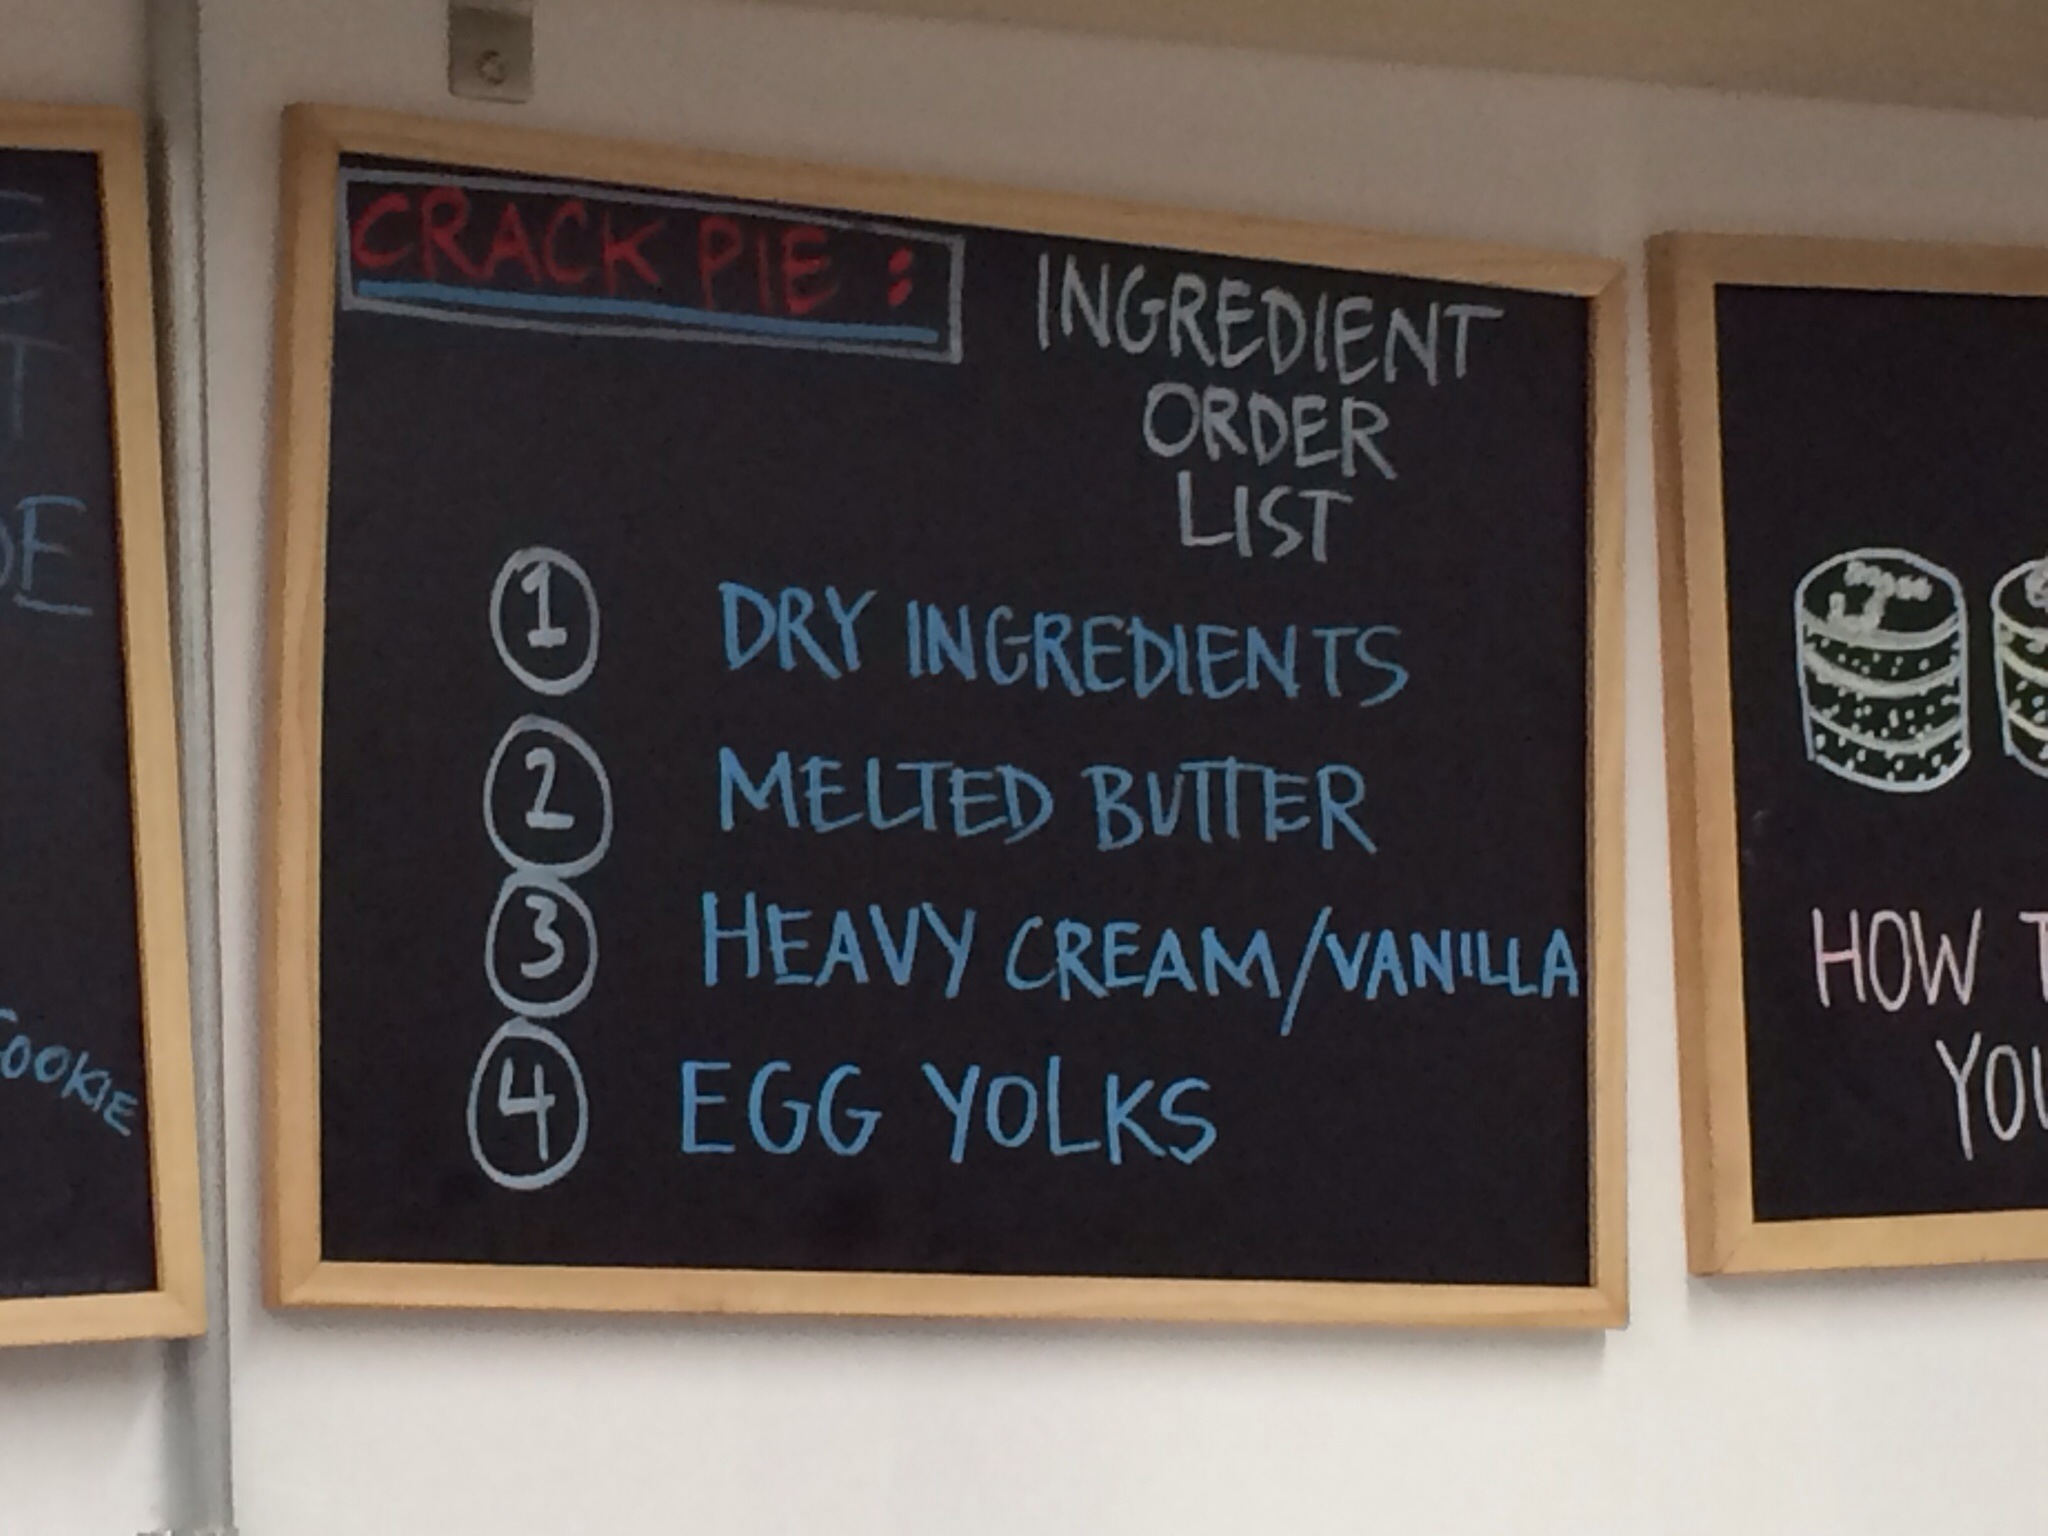 CRACK PIE :
INGREDIENT
ORDER
LIST
1 DRY INGREDIENTS
2 MELTED BUTTER
3 HEAVY CREAM/VANILLA
4 EGG YOLKS
COOKIE
HOW